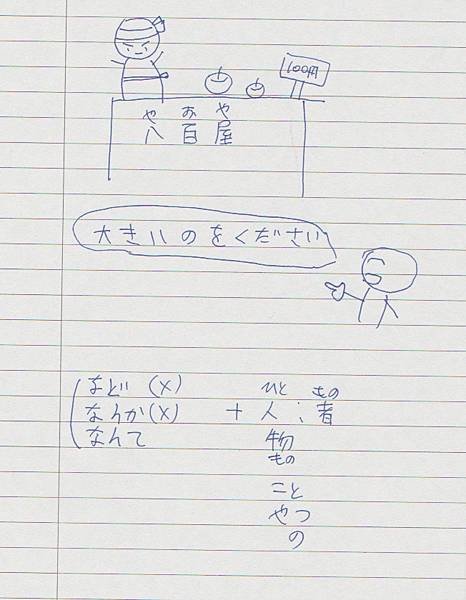 100円
や お や
八 百 屋
大きいのをください
など (×)
なんか(×)
なんて
+
ひと もの
人;者
物
もの
こと
やつ
の